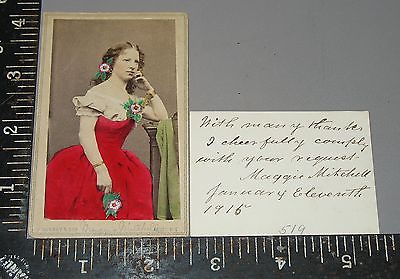 With many thanks
I cheerfully comply
with your request
Maggie Mitchell
January Eleventh
1915
519
1
2
3
4
5
1
2
3
4
5